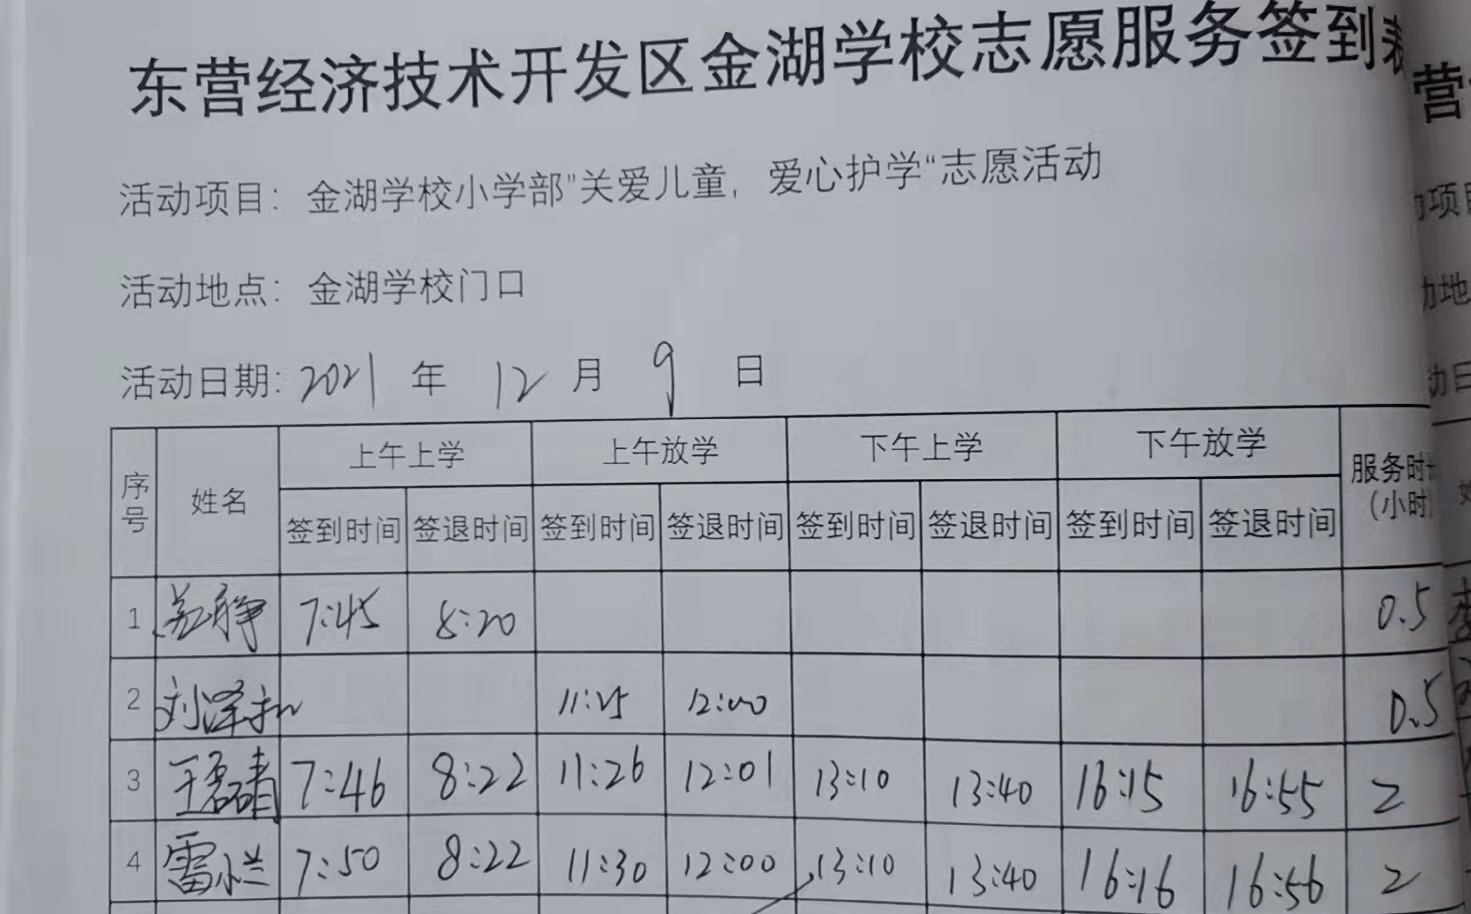 东营经济技术开发区金湖学校志愿服务签到表
活动项目：金湖学校小学部"关爱儿童，爱心护学"志愿活动
活动地点：金湖学校门口
活动日期：2021 年 12 月 9 日
序号 姓名 上午上学 上午放学 下午上学 下午放学 服务时长（小时）
签到时间 签退时间 签到时间 签退时间 签到时间 签退时间 签到时间 签退时间
1 7:45 8:20 0.5
2 刘泽 11:25 12:00 0.5
3 王磊青 7:46 8:22 11:26 12:01 13:10 13:40 16:15 16:55 2
4 雷小兰 7:50 8:22 11:30 12:00 13:10 13:40 16:16 16:56 2
营
项目
地